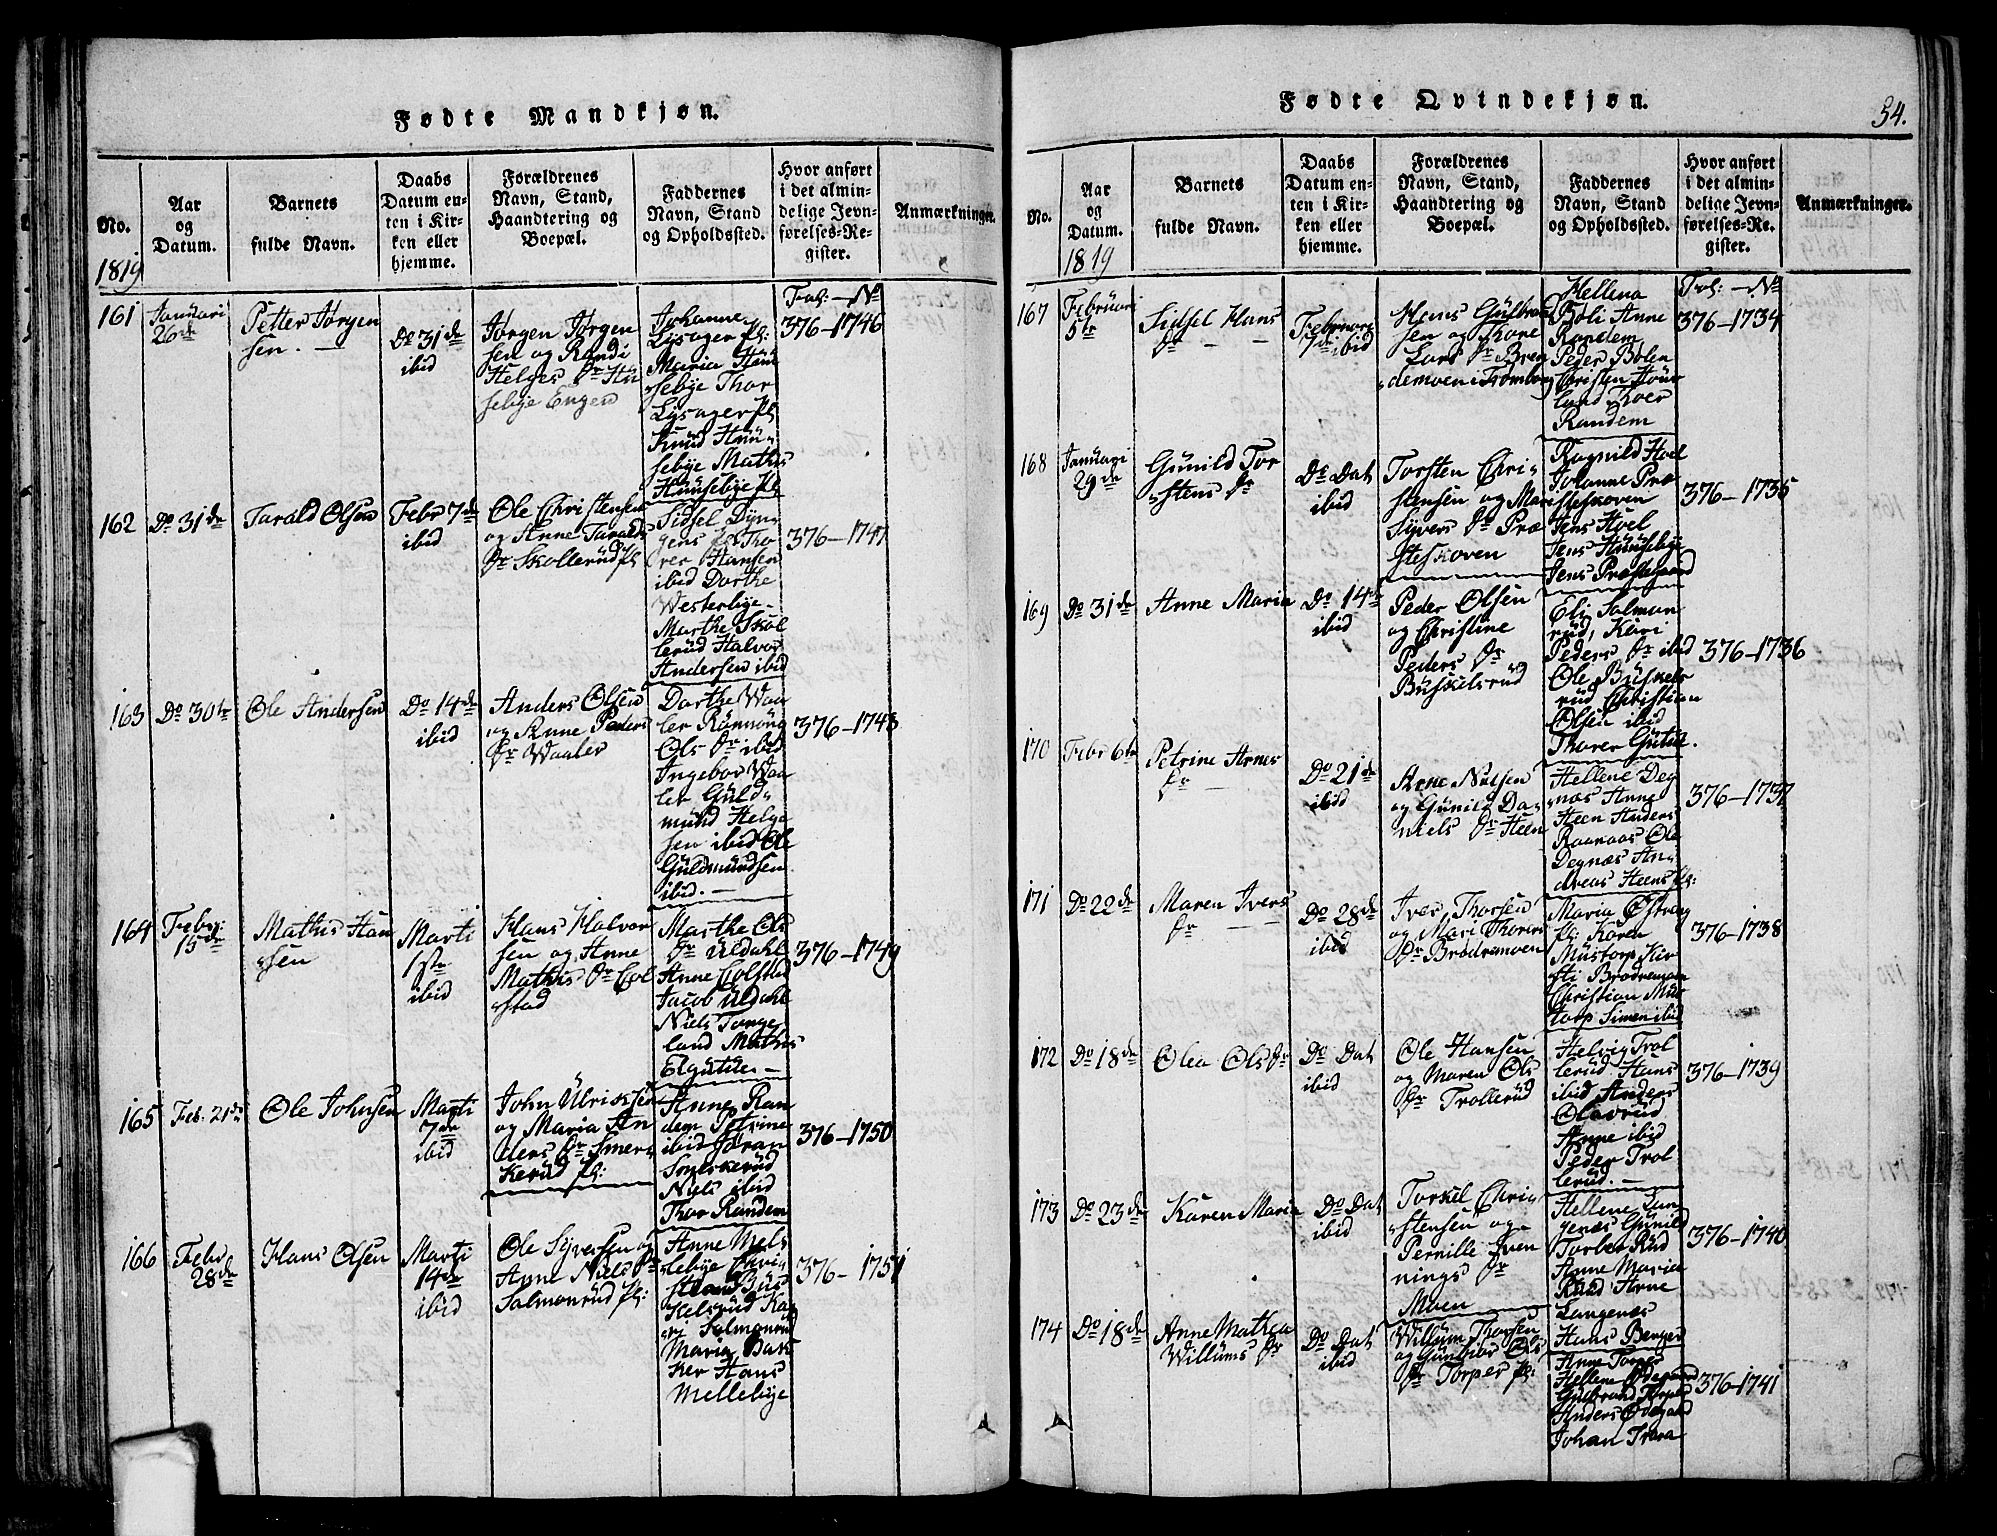 Fødte Mandkjøn.
No.
1819
Aar
og
Datum.
Barnets
fulde Navn.
Daabs
Datum en-
ten i Kir-
ken eller
hjemme.
Forældrenes
Navn, Stand,
Haandtering og
Boepæl.
Faddernes
Navn, Stand
og Opholdssted.
Hvor anført
i det almin-
delige Jevn-
førelses-Re-
gister.
Anmærkninger.
Fol: — No
161
Januari
26de
Petter Jørgen
sen. —
Do 31de
ibid
Jørgen Jørgen
sen og Randi
Helges Dr Hü
sebye Engen
Johanne
Lysager Pl:
Maria Hün
sebye Thor
Lysager Pl:
Knüd Hün
sebye Mathis
Hünsebye Pl
376—1746
162
Do 31de
Tarald Olsen
Febr 7de
ibid
Ole Christensen
og Anne Taralds
Dr Skollerüd Pl
Sidsel Dyn
gens Pl Tho
rer Hansen
ibid Dorthe
Westerbye
Marthe Skol
lerüd Halvor
Andersen ibid
376—1747
163
Do 30te
Ole Andersen
Do 14de
ibid
Anders Olsen
og Anne Peders
Dr Waaler
Dorthe Waa
ler Rønnoug
Ols Dr ibid
Ingebor Waa
ler Güld
münd Helge
sen ibid Ole
Güldmündsen
ibid. —
376—1748
164
Febr:
15de
Mathis Han
sen
Marti
1ste
ibid
Hans Halvor
sen og Anne
Mathis Dr Col
stad
Marthe Ols
Dr Üldahl
Anne Colstad
Jacob Üldahl
Niels Tonge
land Mathis
Elgütite —
376—1749
165
Feb. 21de
Ole Johnsen
Marti
7de
ibid
John Ülrissen
og Maria An
ders Dr Smers
Kerüd Pl:
Anne Ran
dem Petrine
ibid Jøran
Smerskerüd
Niels ibid
Thor Randem
376—1750
166
Febr
28de
Hans Olsen
Marti
14de
ibid
Ole Syversen og
Anne Niels Dr
Salmonrüd Pl:
Anne Mels
lebye Chri
stian Büs
Kelsrüd Ka
ri Salmonrüd
Maria Bak
ker Hans
Mellebye
376—1751
Fødte Qvindekjøn.
34.
No.
Aar
og
Datum.
1819
Barnets
fulde Navn.
Daabs
Datum en-
ten i Kir-
ken eller
hjemme.
Forældrenes
Navn, Stand,
Haandtering og
Boepæl.
Faddernes
Navn, Stand
og Opholdssted.
Hvor anført
i det almin-
delige Jevn-
førelses-Re-
gister.
Anmærkninger.
Fol: — No
167
Februari
5te
Sidsel Hans
Dr — —
Februari
7de ibid
Hans Gülbran
sen og Thone
Lars Dr Bren
demoen i Trømborg
Hellena
Boli Anne
Randem
Peder Bølen
Christen Hou
lund Iver
Randem
376—1734
168
Januari
29de
Günild Tor
stens Dr
Do Dat
ibid
Torsten Chri
stensen og Mari
Syvers Dr Præ
steskoven
Ragnild Hoel
Johanne Præ
steskoven
Jens Hoel
Jens Hünsebye
Jens Præstegaard
376—1735
169
Do 31de
Anne Maria
Do 14de
ibid
Peder Olsen
og Christine
Peders Dr
Büskelsrüd
Eli Salmon
rüd, Kari
Peders Dr ibid
Ole Büskels
rüd Christian
Olsen ibid
Thorer Gütüe.
376—1736
170
Febr 6te
Petrine Arnes
Dr — —
Do 21de
ibid
Arne Nielsen
og Günild Da
niels Dr Heen
Hellene Deg
næs Anne
Heen Anders
Raanaas Ole
Degnæs An
dreas Heens Pl:
376—1737
171
Do 22de
Maren Ivers
Dr — —
Do 28de
ibid
Iver Thorsen
og Mari Thorers
Dr Brødremoen
Maria Østreng
Pl: Karen
Müstorp Kir
sti Brødremoen
Christian Müs
torp Simen ibid
376—1738
172
Do 18de
Olea Ols Dr
Do Dat
ibid
Ole Hansen
og Maren Ols
Dr Trollerüd
Helvig Trol
lerüd Hans
ibid Anders
Olavrüd
Anne ibid
Peder Trol
lerüd. —
376—1739
173
Do 23de
Karen Maria
Do Dat
ibid
Torkel Chri
stensen og
Pernille Iven
nings Dr
Moen
Hellene Lan
genæs Günild
Torber Rüd
Anne Maria
Rüd Arne
Langenæs
Hans Berger
376—1740
174
Do 18de
Anne Mathea
Willüms Dr
Do Dat
ibid
Willüm Thorsen
og Günbior Ols
Dr Torper Pl:
Anne Torper
Hellene Ødegaard
Gülbrand Torper
Anders Ødegaard
Johan Trara
376—1741